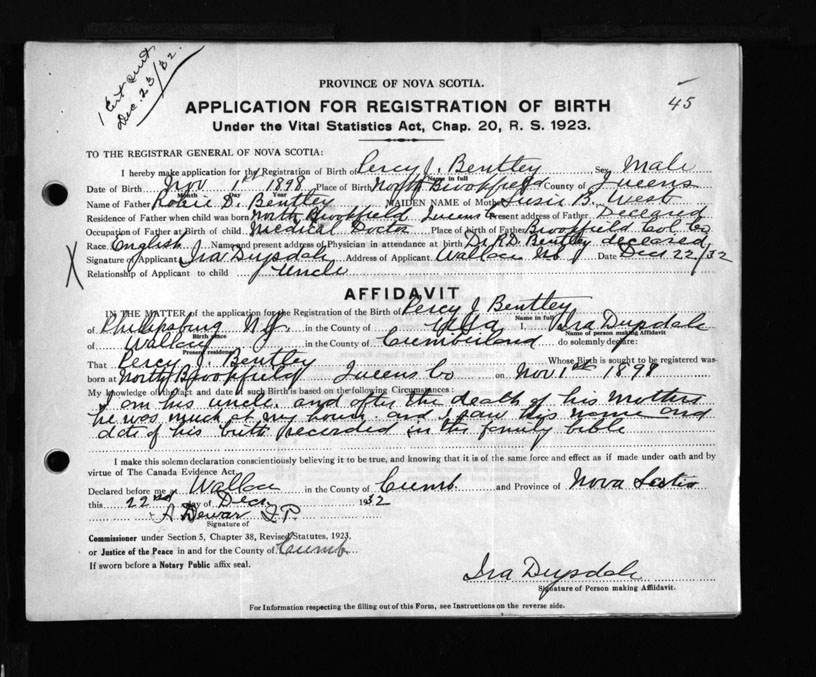 1 Cert sent
Dec. 23/32.
45
PROVINCE OF NOVA SCOTIA.
APPLICATION FOR REGISTRATION OF BIRTH
Under the Vital Statistics Act, Chap. 20, R. S. 1923.
TO THE REGISTRAR GENERAL OF NOVA SCOTIA:
I hereby make application for the Registration of Birth of Percy J. Bentley Sex Male
Name in full
Date of Birth Nov 1st 1898 Place of Birth North Brookfield County of Queens
Month Year
Name of Father S. Bentley MAIDEN NAME of Mother Susie B. West
Residence of Father when child was born North Brookfield Queens Co Present address of Father Deceased
Occupation of Father at Birth of child Medical Doctor Place of birth of Father Brookfield Col. Co
Race English Name and present address of Physician in attendance at birth Dr R.D. Bentley deceased
Signature of Applicant Ira Dysdale Address of Applicant Wallace NS Date Dec 22/32
X
Relationship of Applicant to child Uncle
AFFIDAVIT
IN THE MATTER of the application for the Registration of the Birth of Percy J Bentley
Name in full
of Philipsburg N.J. in the County of USA I, Ira Dysdale
Birth place Name of person making Affidavit
of Wallace in the County of Cumberland do solemnly declare:
Present residence
That Percy J. Bentley Whose Birth is sought to be registered was
born at North Brookfield Queens Co on Nov 1st 1898
My knowledge of the fact and date of such Birth is based on the following Circumstances:
I am his uncle and after the death of his mother
he was much at my house and I saw his name and
date of his birth recorded in the family bible
I make this solemn declaration conscientiously believing it to be true, and knowing that it is of the same force and effect as if made under oath and by
virtue of The Canada Evidence Act,
Declared before me at Wallace in the County of Cumb. and Province of Nova Scotia
this 22nd day of Dec. 1932
A Dewar J.P.
Signature of
Commissioner under Section 5, Chapter 38, Revised Statutes, 1923,
or Justice of the Peace in and for the County of Cumb.
If sworn before a Notary Public affix seal.
Ira Dysdale
Signature of Person making Affidavit.
For Information respecting the filling out of this Form, see Instructions on the reverse side.